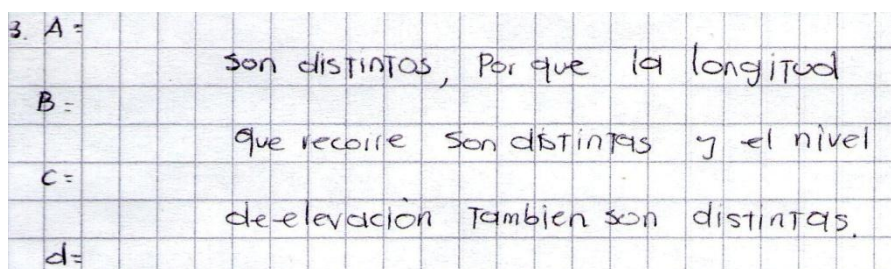 3. A =
son distintos, Por que la longitud
B =
que recorre son distintas y el nivel
C =
de elevaciòn Tambien son distintas.
d=